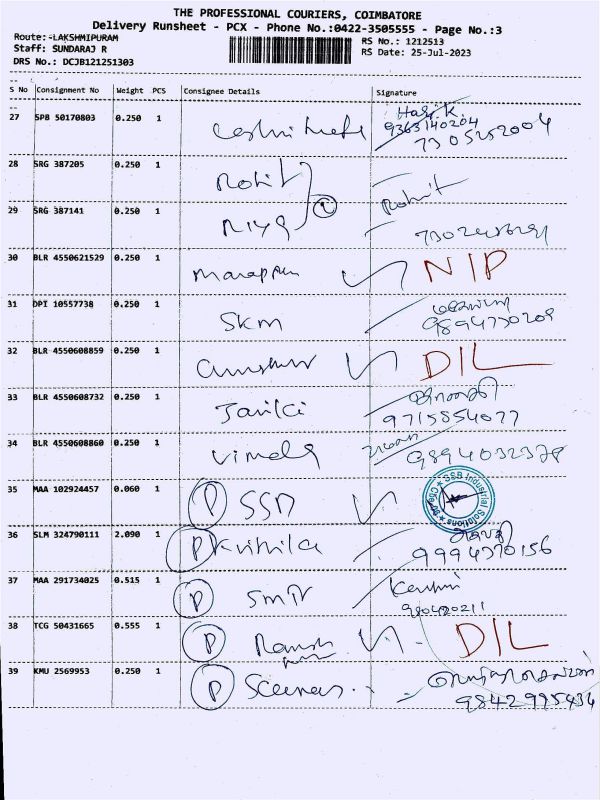 THE PROFESSIONAL COURIERS, COIMBATORE
Delivery Runsheet - PCX - Phone No.:0422-3505555 - Page No.:3
Route:-LAKSHMIPURAM RS No.: 1212513
Staff: SUNDARAJ R RS Date: 25-Jul-2023
DRS No.: DCJB121251303
S No Consignment No Weight PCS Consignee Details Signature
27 SPB 50170803 0.250 1 Hari K.
9363140204
7305252004
28 SRG 387205 0.250 1 Rohit Rohit
29 SRG 387141 0.250 1 Riya
30 BLR 4550621529 0.250 1 Marappan N/P
31 DPI 10557738 0.250 1 SKM
9894730209
32 BLR 4550608859 0.250 1 D/L
33 BLR 4550608732 0.250 1 Janki
9715554077
34 BLR 4550608860 0.250 1 Vimala 9894032378
35 MAA 102924457 0.060 1 P SSD SSB Industrial Solutions
36 SLM 324790111 2.090 1 P
9994370156
37 MAA 291734025 0.515 1 P
980420211
38 TCG 50431665 0.555 1 P Ramesh D/L
39 KMU 2569953 0.250 1 P
9842995434